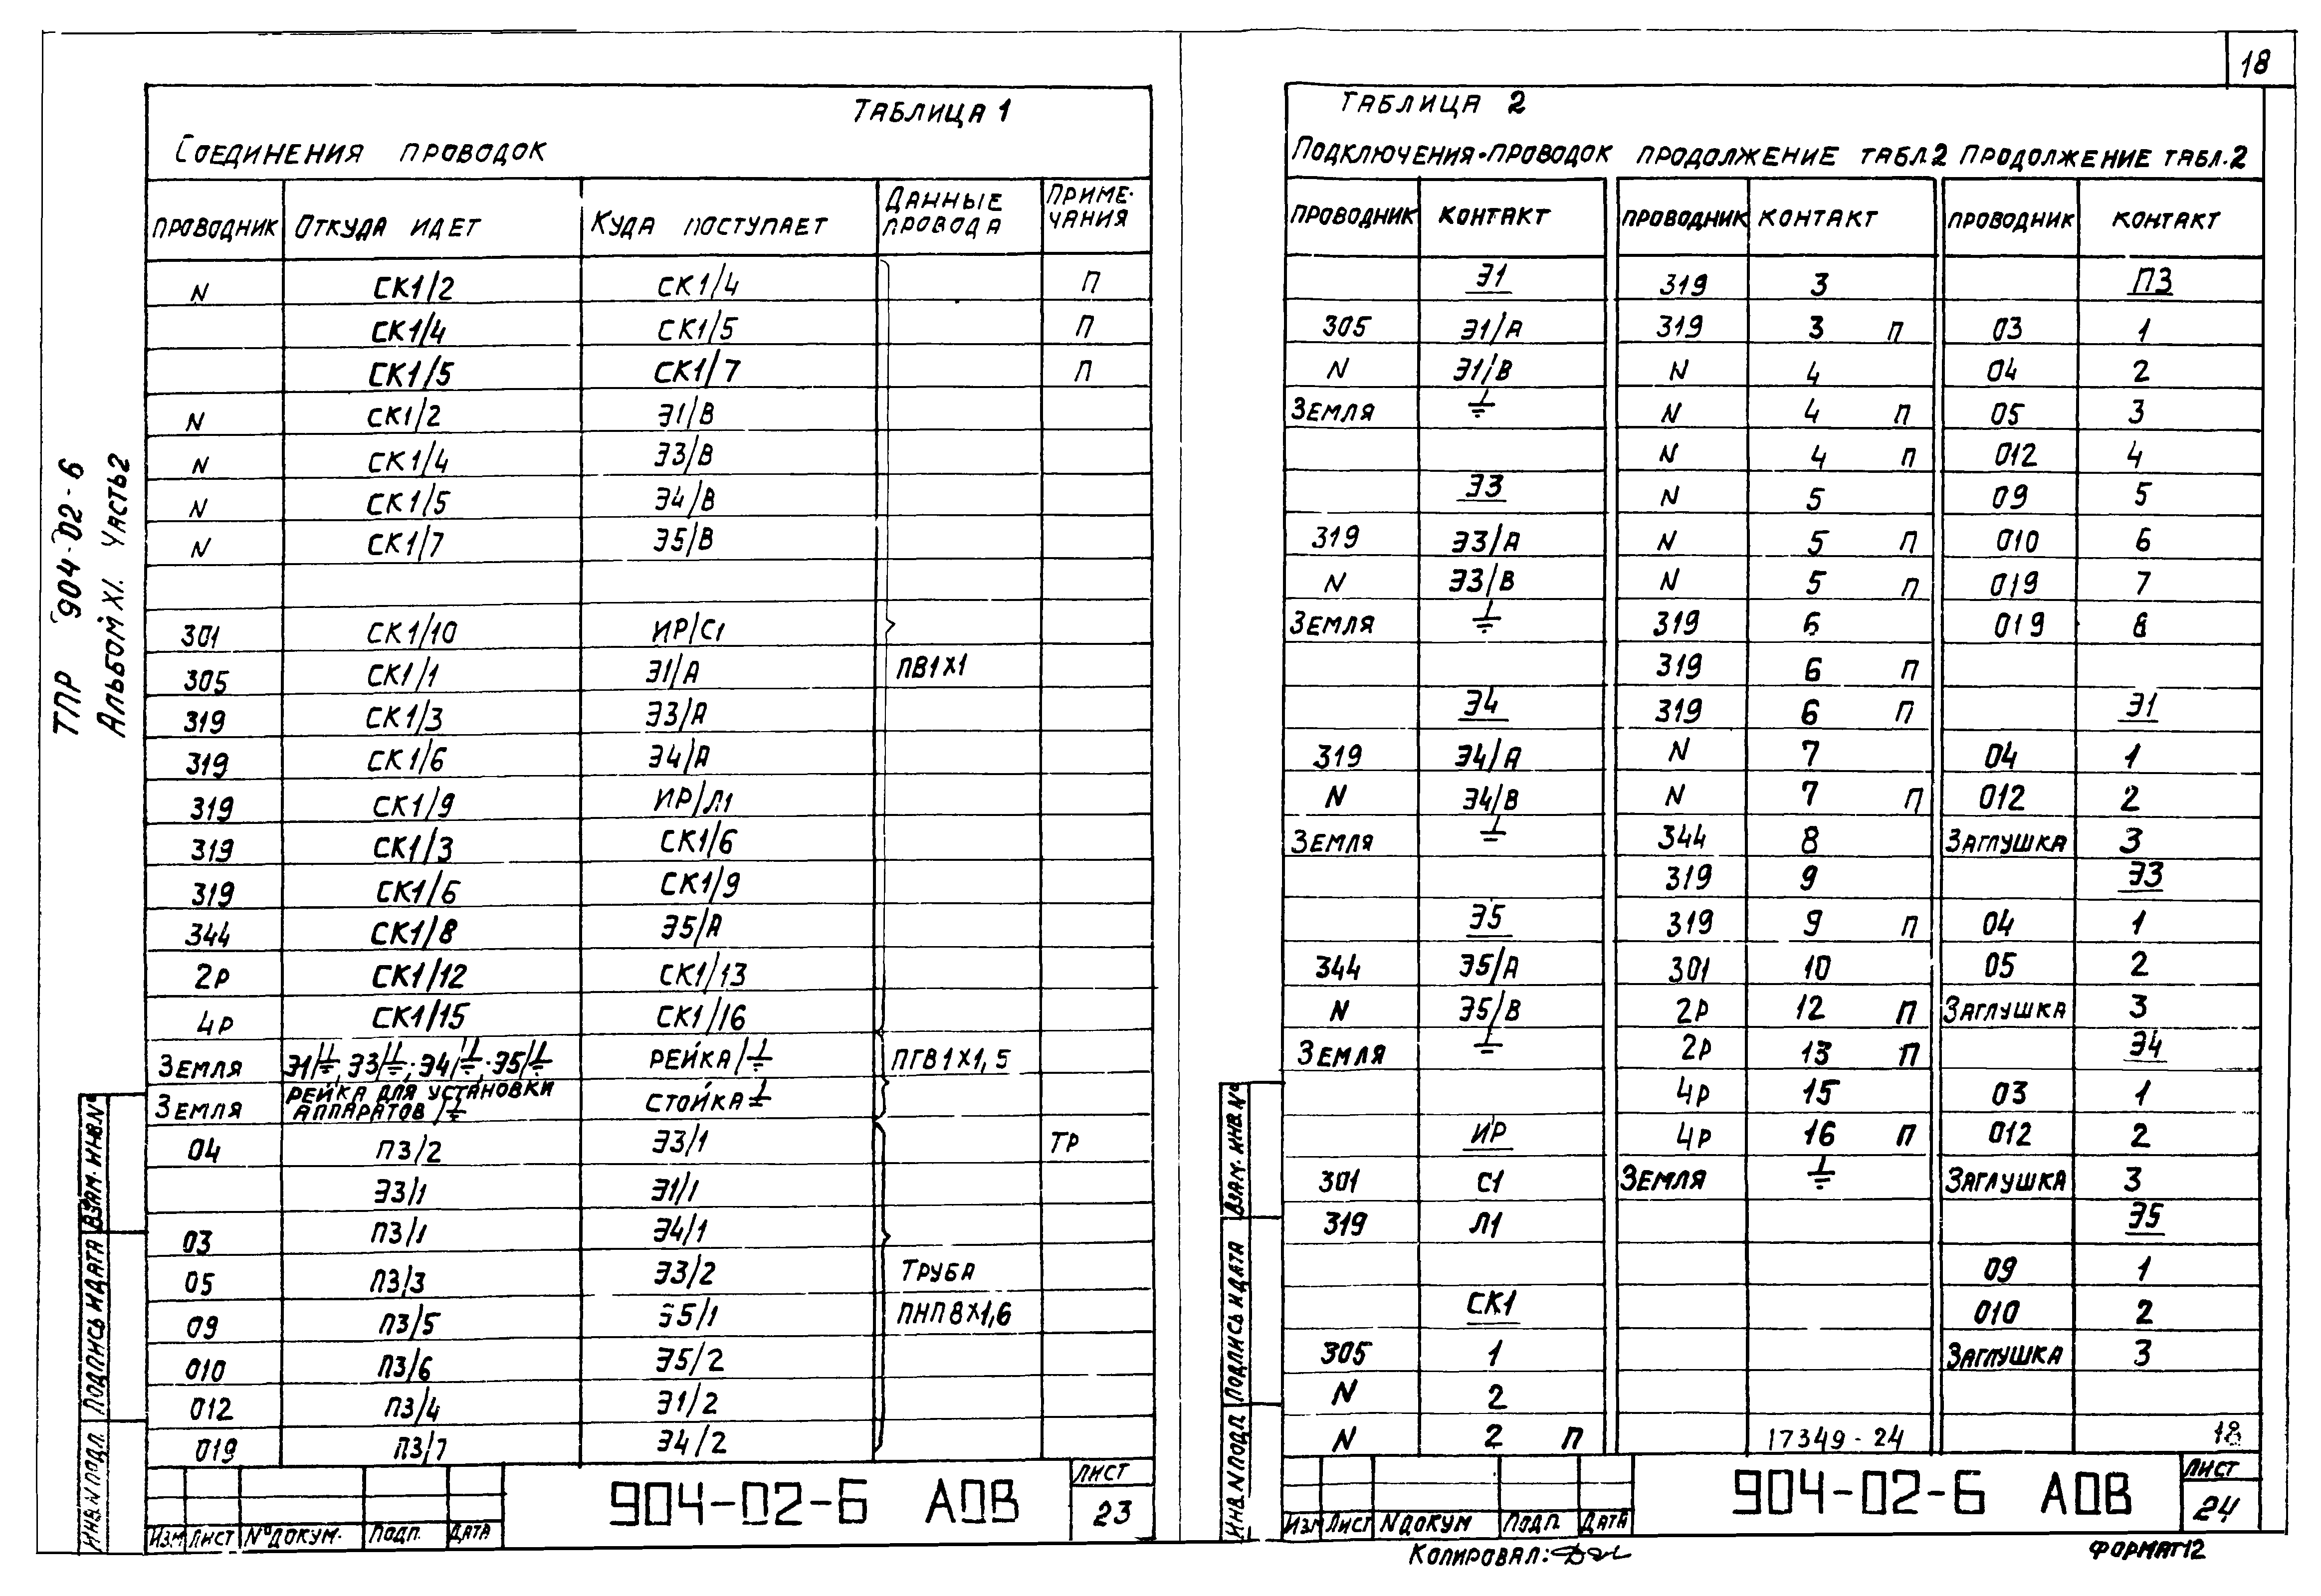 18
ТПР 904-02-6
Альбом XI. Часть 2
Таблица 1
Соединения проводок
проводник Откуда идет Куда поступает Данные провода Примечания
N СК1/2 СК1/4 П
СК1/4 СК1/5 П
СК1/5 СК1/7 П
N СК1/2 Э1/В
N СК1/4 Э3/В
N СК1/5 Э4/В
N СК1/7 Э5/В
301 СК1/10 ИР/С1
305 СК1/1 Э1/А ПВ1х1
319 СК1/3 Э3/А
319 СК1/6 Э4/А
319 СК1/9 ИР/Л1
319 СК1/3 СК1/6
319 СК1/6 СК1/9
344 СК1/8 Э5/А
2Р СК1/12 СК1/13
4Р СК1/15 СК1/16
Земля Э1/⏚, Э3/⏚, Э4/⏚, Э5/⏚ рейка/⏚ ПГВ1х1,5
Земля рейка для установки аппаратов/⏚ стойка ⏚
04 П3/2 Э3/1 ТР
Э3/1 Э1/1
03 П3/1 Э4/1
05 П3/3 Э3/2 Труба
09 П3/5 Э5/1 ПНП 8х1,6
010 П3/6 Э5/2
012 П3/4 Э1/2
019 П3/7 Э4/2
Изм Лист №докум. Подп. Дата
904-02-6 АОВ
Лист
23
Инв.N подл. Подпись и дата Взам. инв.N°
Таблица 2
Подключения проводок продолжение табл.2 Продолжение табл.2
проводник контакт проводник контакт проводник контакт
Э1 319 3 П3
305 Э1/А 319 3 П 03 1
N Э1/В N 4 04 2
Земля ⏚ N 4 П 05 3
N 4 П 012 4
Э3 N 5 09 5
319 Э3/А N 5 П 010 6
N Э3/В N 5 П 019 7
Земля ⏚ 319 6 019 8
319 6 П
Э4 319 6 П Э1
319 Э4/А N 7 04 1
N Э4/В N 7 П 012 2
Земля ⏚ 344 8 Заглушка 3
319 9 Э3
Э5 319 9 П 04 1
344 Э5/А 301 10 05 2
N Э5/В 2Р 12 П Заглушка 3
Земля ⏚ 2Р 13 П Э4
4Р 15 03 1
ИР 4Р 16 П 012 2
301 С1 Земля ⏚ Заглушка 3
319 Л1 Э5
09 1
СК1 010 2
305 1 Заглушка 3
N 2
N 2 П 17349-24 18
Изм Лист N докум Подп. Дата
904-02-6 АОВ
Лист
24
Инв.N подл. Подпись и дата Взам. инв.N°
Копировал:
Формат 12